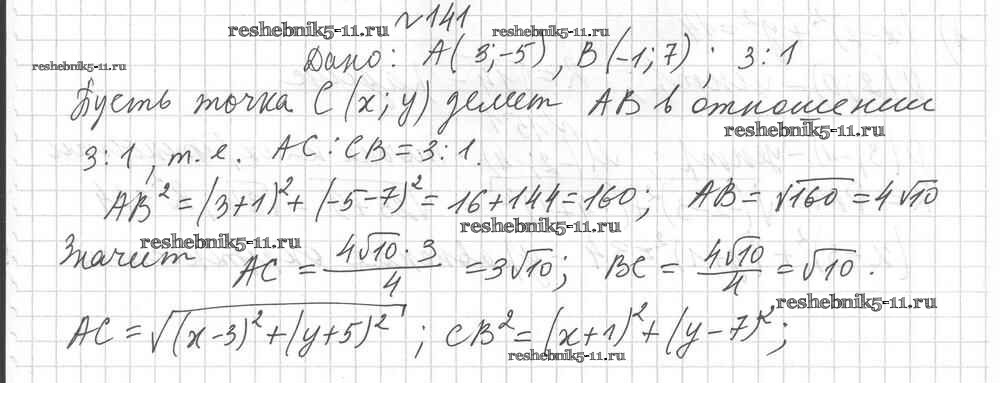 №141
reshebnik5-11.ru reshebnik5-11.ru
Дано: A(3;-5), B(-1;7); 3:1
reshebnik5-11.ru
Пусть точка C(x;y) делит AB в отношении
reshebnik5-11.ru
3:1, т.е. AC:CB=3:1.
AB²=(3+1)²+(-5-7)²=16+144=160; AB=√160=4√10
reshebnik5-11.ru reshebnik5-11.ru
Значит AC = 4√10·3/4 = 3√10; BC = 4√10/4 = √10.
reshebnik5-11.ru
AC=√((x-3)²+(y+5)²; CB²=(x+1)²+(y-7)²;
reshebnik5-11.ru